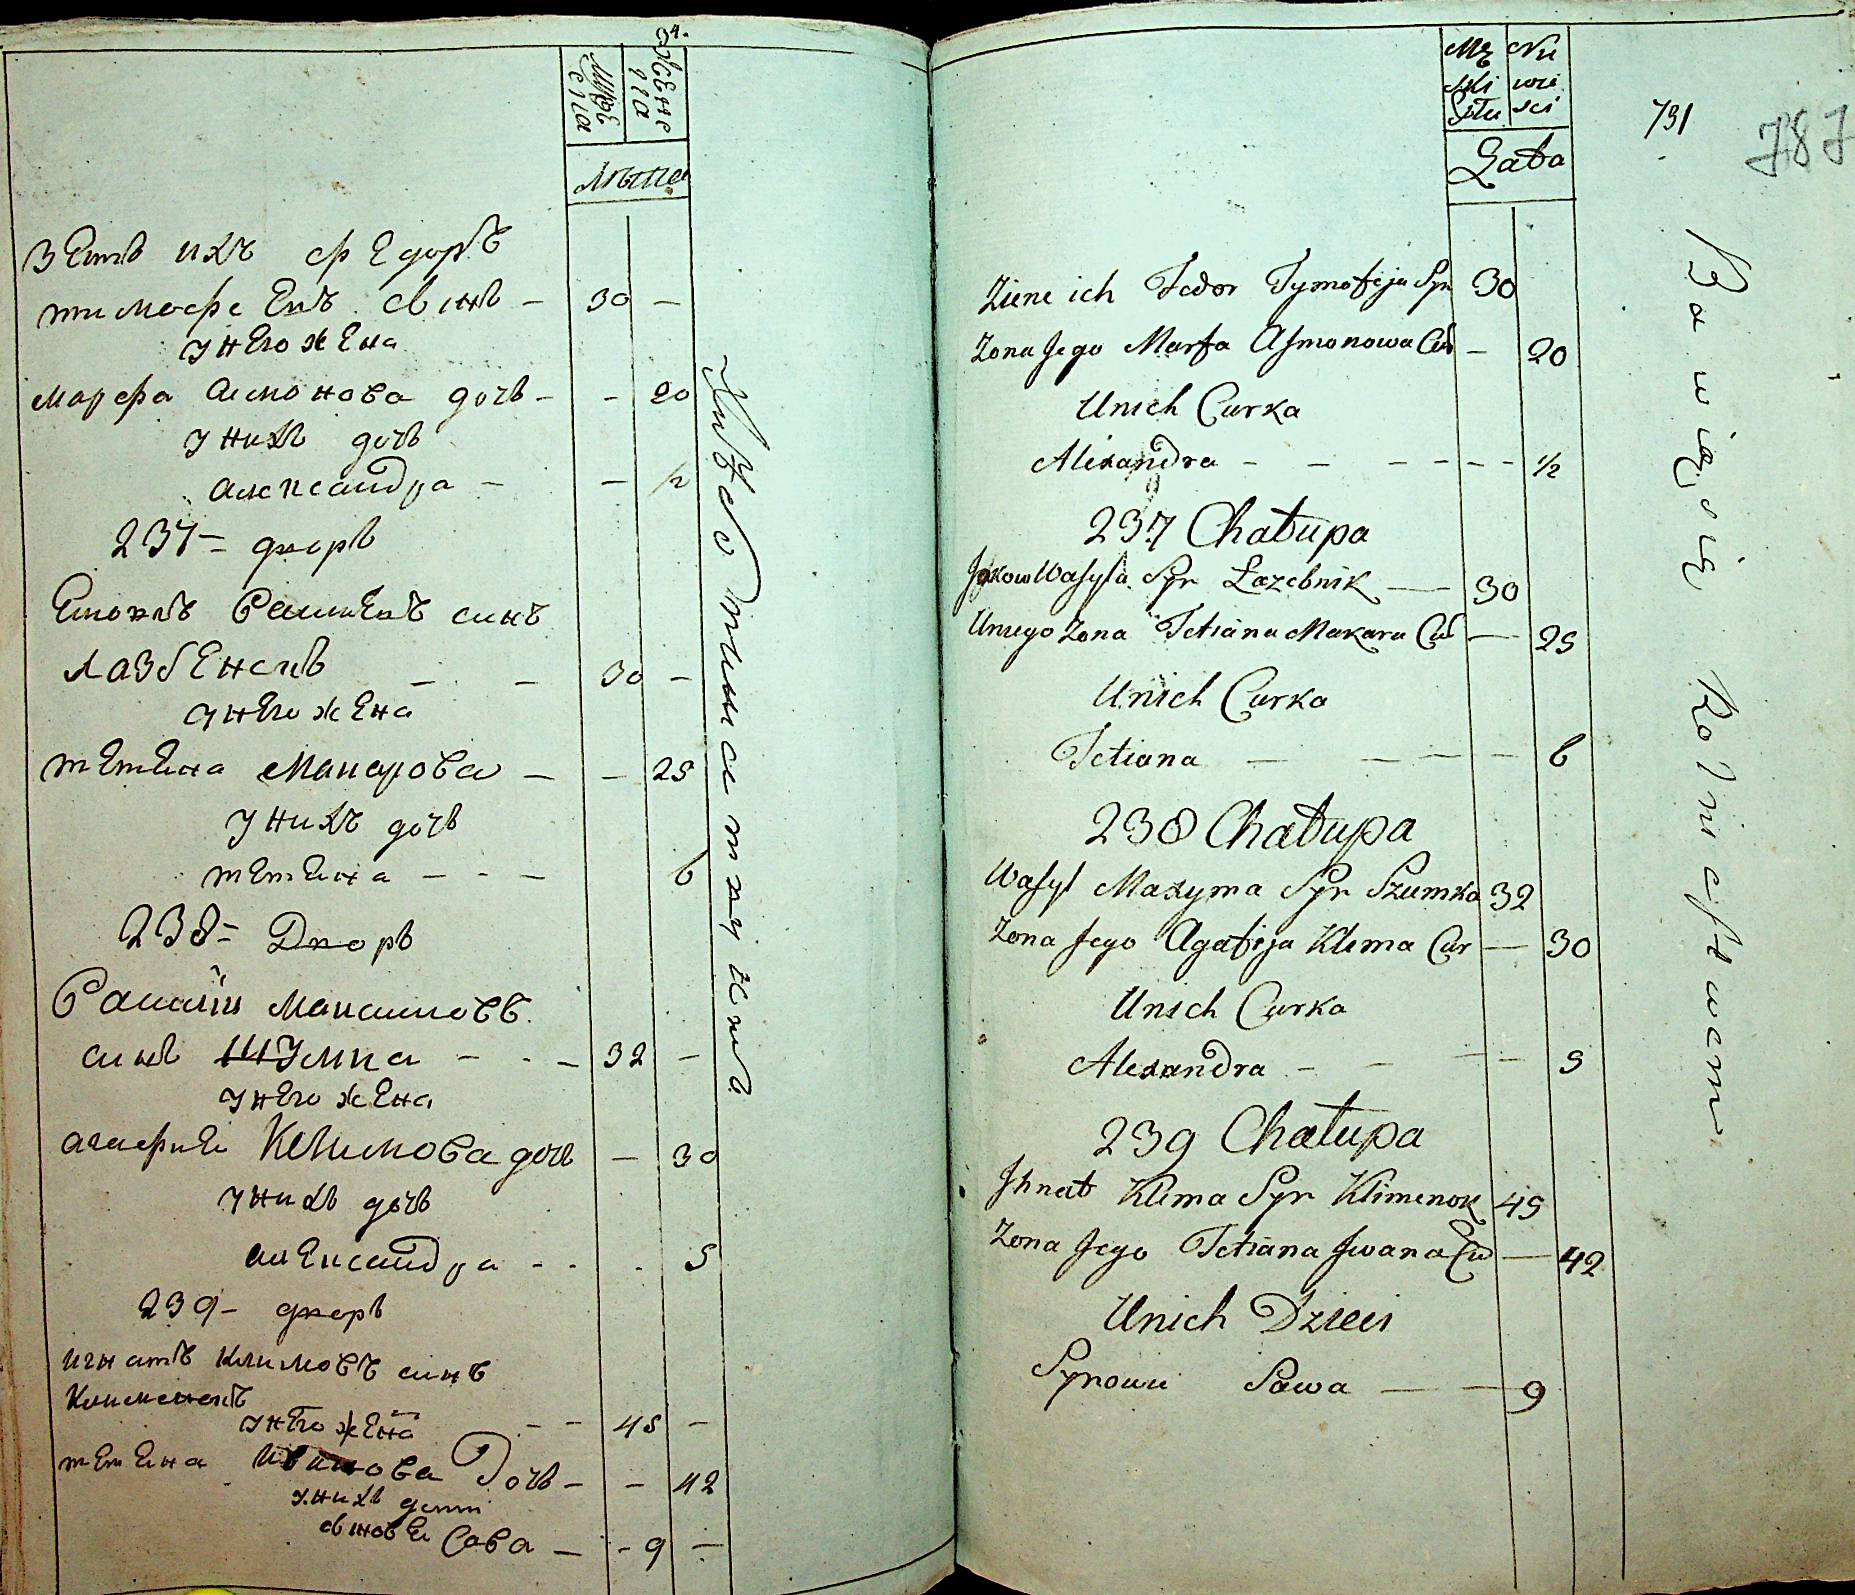 зетъ ихъ федоръ
тимофеевъ синъ – 30 –
у него жена
марфа асмонова дочъ – – 20
у нихъ дочъ
александра – – ½
237 – дворъ
синъ
лазбенскъ – – 30 –
у него жена
тетеяна Макарова – – 25
у нихъ дочъ
тетеяна – – – 6
238 = Дворъ
Василій Максимовъ
синъ Шумка – – – 32 –
у него жена
агафия Климова дочъ – 30
у нихъ дочъ
александра – – . 5
239 – дворъ
игнатъ климовъ синъ
Клименокъ
у него жена – – 45 –
тетеяна Иванова Дочъ – – 42
у нихъ дети
синове Сава – – 9 –
Лѣта
Mę ski Płu
Nie wie sci
Lata
731
787
Ziene ich Fedor Tymofeja Syn 30
Zona Jego Marfa Asmonowa Cur – 20
Unich Curka
Alexandra – – – – – – ½
237 Chałupa
Jakow Wasyla Syn Łazebnik — 30
Uniego Zona Tetiana Makara Cur — 25
Unich Curka
Tetiana — – — – 6
238 Chałupa
Wasyl Maxyma Syn Szumka 32
Zona Jego Agafija Klima Cur — 30
Unich Curka
Alexandra – – — – 5
239 Chałupa
Ihnat Klima Syn Klimenok 45
Zona Jego Tetiana Iwana Cur — 42
Unich Dzieci
Synowie Sawa — — 9
Bawią się Rolnictwem